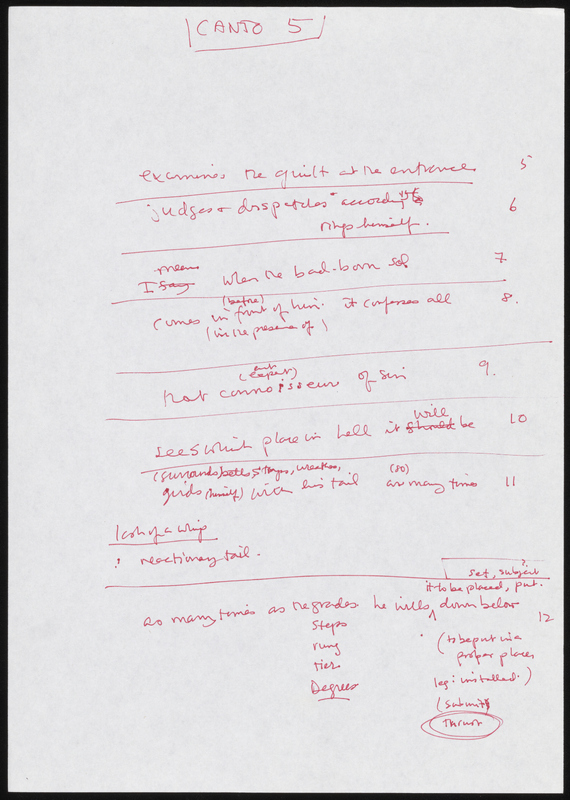 CANTO 5
examines the guilt at the entrance 5
judges & dispatches according
rings himself. 6
means
I say when the bad-born soul 7
(before)
comes in front of him. it confesses all 8.
(in the presence of)
(expert)
that connoisseur of sin 9.
will
sees which place in hell it should be 10
(surrounds)
girds (himself) with his tail as many times 11
(so)
lash of a whip
: reactionary tail.
set, subject?
it to be placed, put.
as many times as the grades he wills, down below 12
steps
rung
tier
Degrees
(to be put in a
proper place,
leg: installed.)
(submit)
Thrust